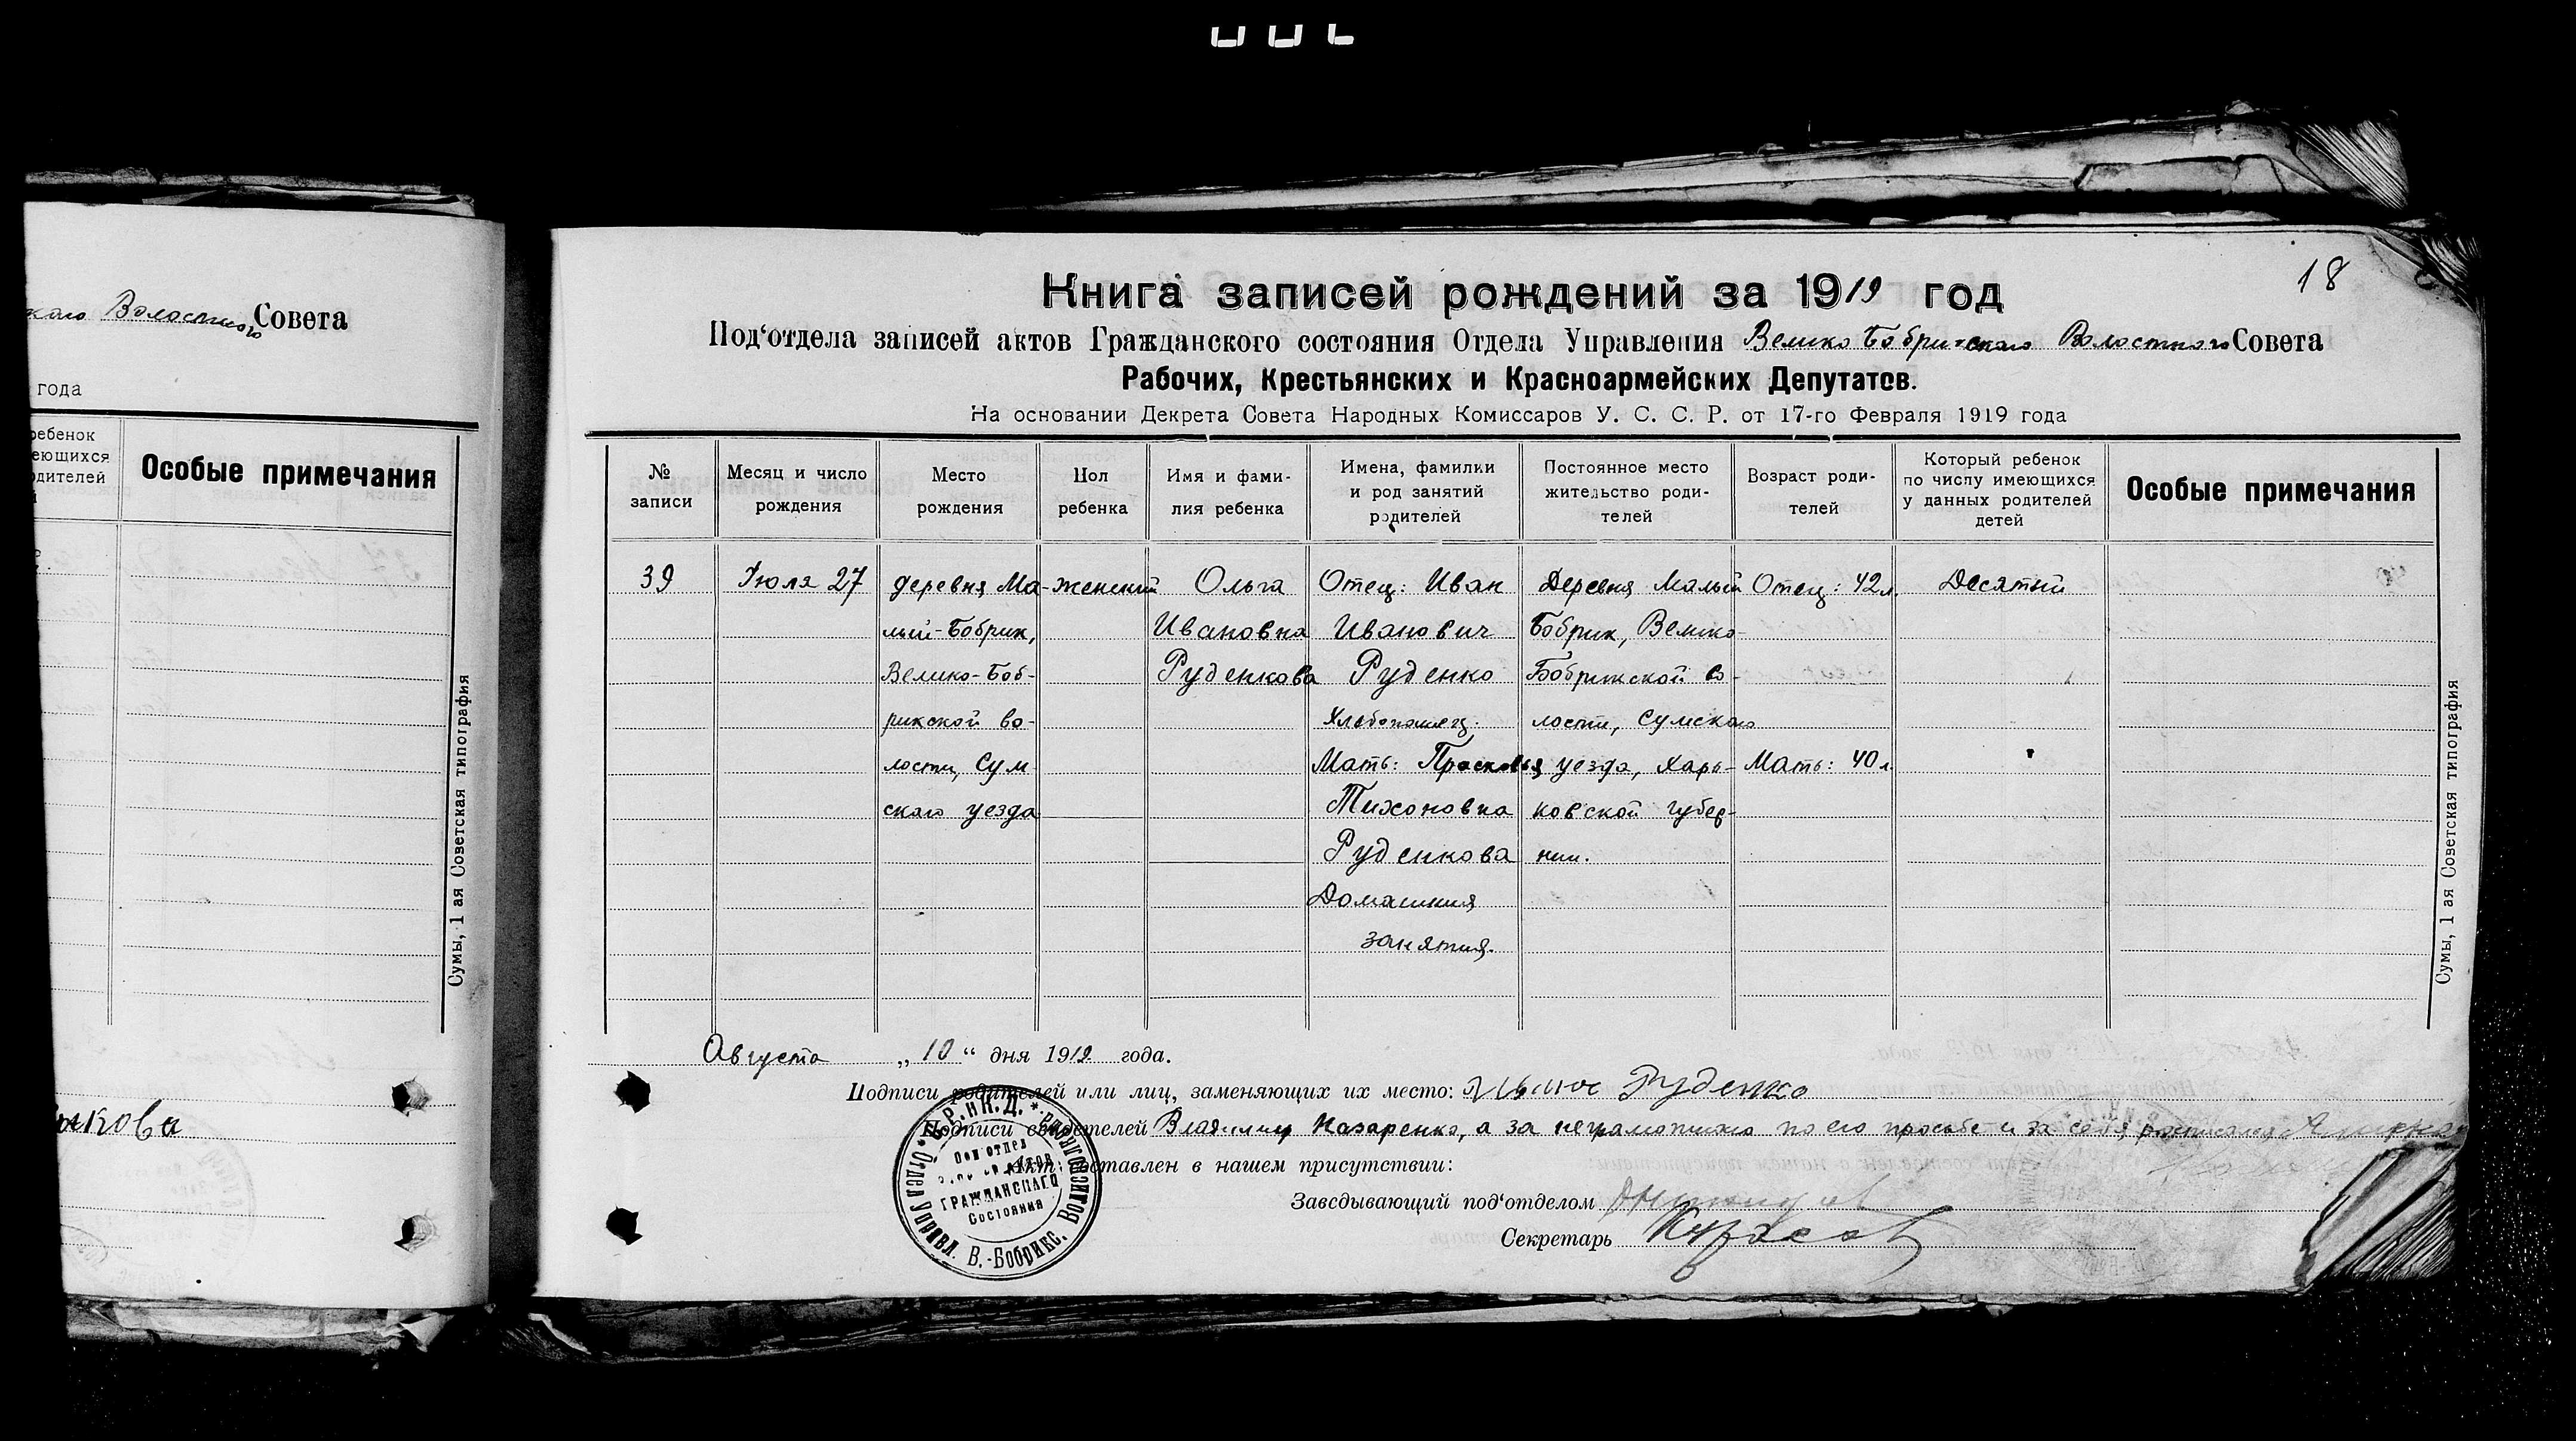 каго Волостного Совета
года
ребенок
еющихся
одителей
Особые примечания
Сумы, 1 ая Советская типография
18
Книга записей рождений за 1919 год
Под'отдела записей актов Гражданского состояния Отдела Управления Велико Бобрикскаго Волостного Совета
Рабочих, Крестьянских и Красноармейских Депутатов.
На основании Декрета Совета Народных Комиссаров У. С. С. Р. от 17-го Февраля 1919 года
№ записи
Месяц и число рождения
Место рождения
Пол ребенка
Имя и фами-
лия ребенка
Имена, фамилии
и род занятий
родителей
Постоянное место
жительство роди-
телей
Возраст роди-
телей
Который ребенок
по числу имеющихся
у данных родителей
детей
Особые примечания
39
Июля 27
деревня Ма-
лый-Бобрик,
Велико-Боб-
рикской во-
лости, Сум-
скаго уезда
женский
Ольга
Ивановна
Руденкова
Отец: Иван
Иванович
Руденко
Хлебопашец.
Мать: Прасковья
Тихоновна
Руденкова
Домашния
занятия.
Деревня Малый
Бобрик, Велико-
Бобрикской во-
лости, Сумскаго
уезда, Харь-
ковской губер-
нии.
Отец: 42 л.
Мать: 40 л.
Десятый
Сумы, 1 ая Советская типография
Августа „10“ дня 1919 года.
Подписи родителей или лиц, заменяющих их место: Руденко
Подписи свидетелей Владимир Назаренко, а за неграмотного по его просьбе и за себя расписался
Акт составлен в нашем присутствии:
Заведывающий под'отделом
Секретарь
Под отдел
актов
ГРАЖДАНСКАГО
Состояния
Отдел Управл. В.-Бобрикс. Волисполком. * С.Р.и К.Д. *